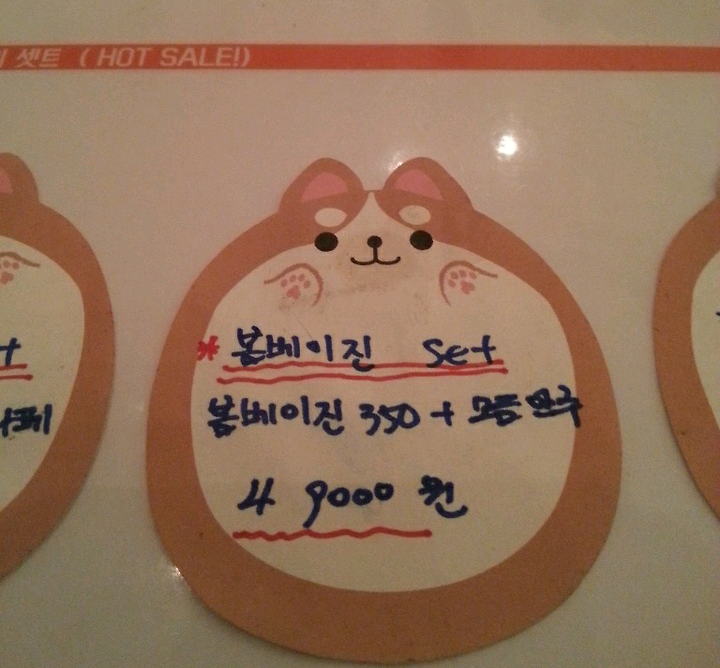 셋트 ( HOT SALE!)
* 봄베이진 Set
봄베이진 350 + 모듬안주
4 9000 원